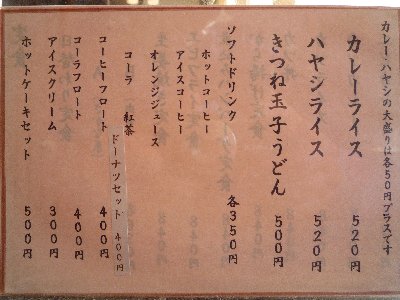 カレー・ハヤシの大盛りは各50円プラスです
カレーライス 520円
ハヤシライス 520円
きつね玉子うどん 500円
ソフトドリンク 各350円
ホットコーヒー
アイスコーヒー
オレンジジュース
コーラ 紅茶
ドーナツセット 400円
コーヒーフロート 400円
コーラフロート 400円
アイスクリーム 300円
ホットケーキセット 500円